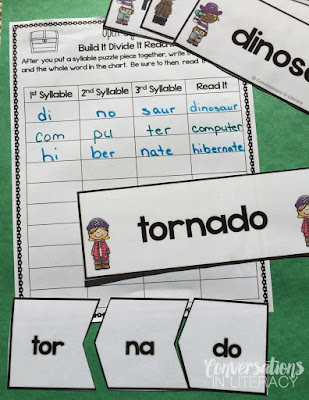 Build It Divide It Read
After you put a syllable puzzle piece together, write
and the whole word in the chart. Be sure to then read
1st Syllable 2nd Syllable 3rd Syllable Read It
di no saur dinosaur
com pu ter computer
hi ber nate hibernate
dinosa
tornado
tor na do
Conversations
IN LITERACY